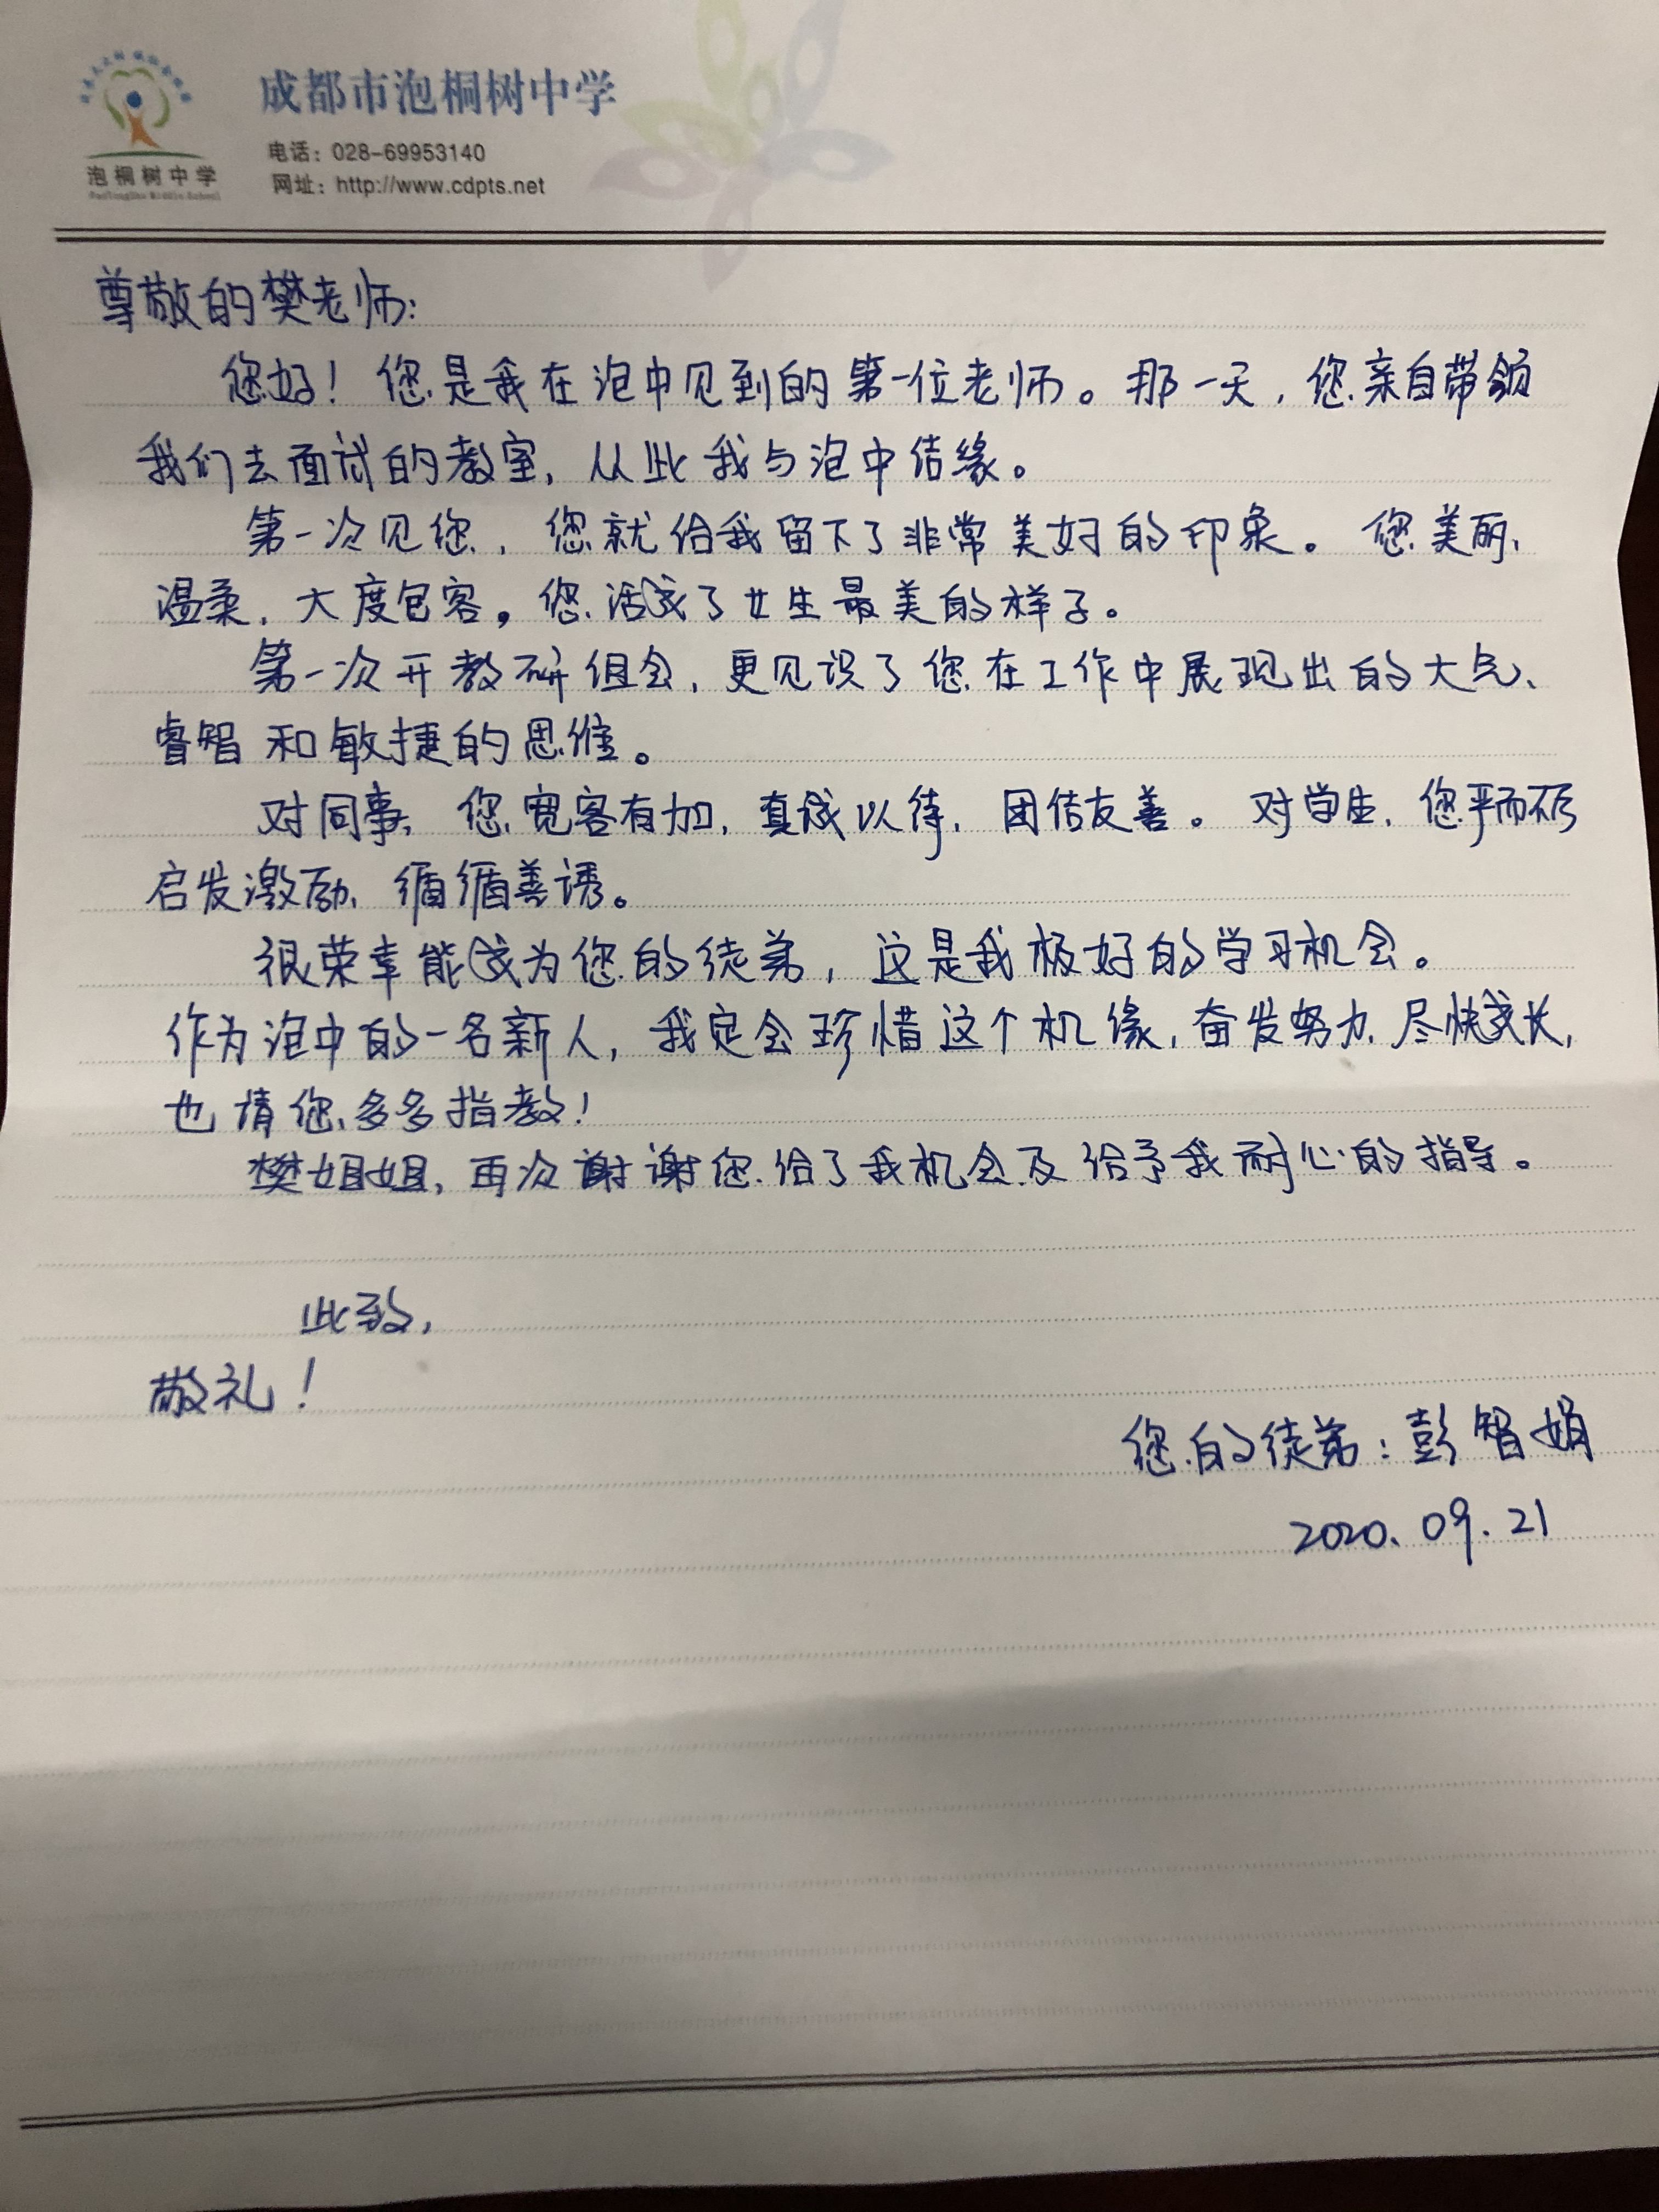 成都市泡桐树中学
电话：028-69953140
网址：http://www.cdpts.net
泡桐树中学
尊敬的樊老师：
您好！您是我在泡中见到的第一位老师。那一天，您亲自带领
我们去面试的教室，从此我与泡中结缘。
第一次见您，您就给我留下了非常美好的印象。您美丽、
温柔，大度包容。您活成了女生最美的样子。
第一次开教研组会，更见识了您在工作中展现出的大气、
睿智和敏捷的思维。
对同事，您宽容有加，真诚以待，团结友善。对学生，您严而不厉
启发激励，循循善诱。
很荣幸能成为您的徒弟，这是我极好的学习机会。
作为泡中的一名新人，我定会珍惜这个机缘，奋发努力，尽快成长，
也请您多多指教！
樊姐姐，再次谢谢您给了我机会及给予我耐心的指导。
此致，
敬礼！
您的徒弟：彭智娟
2020.09.21